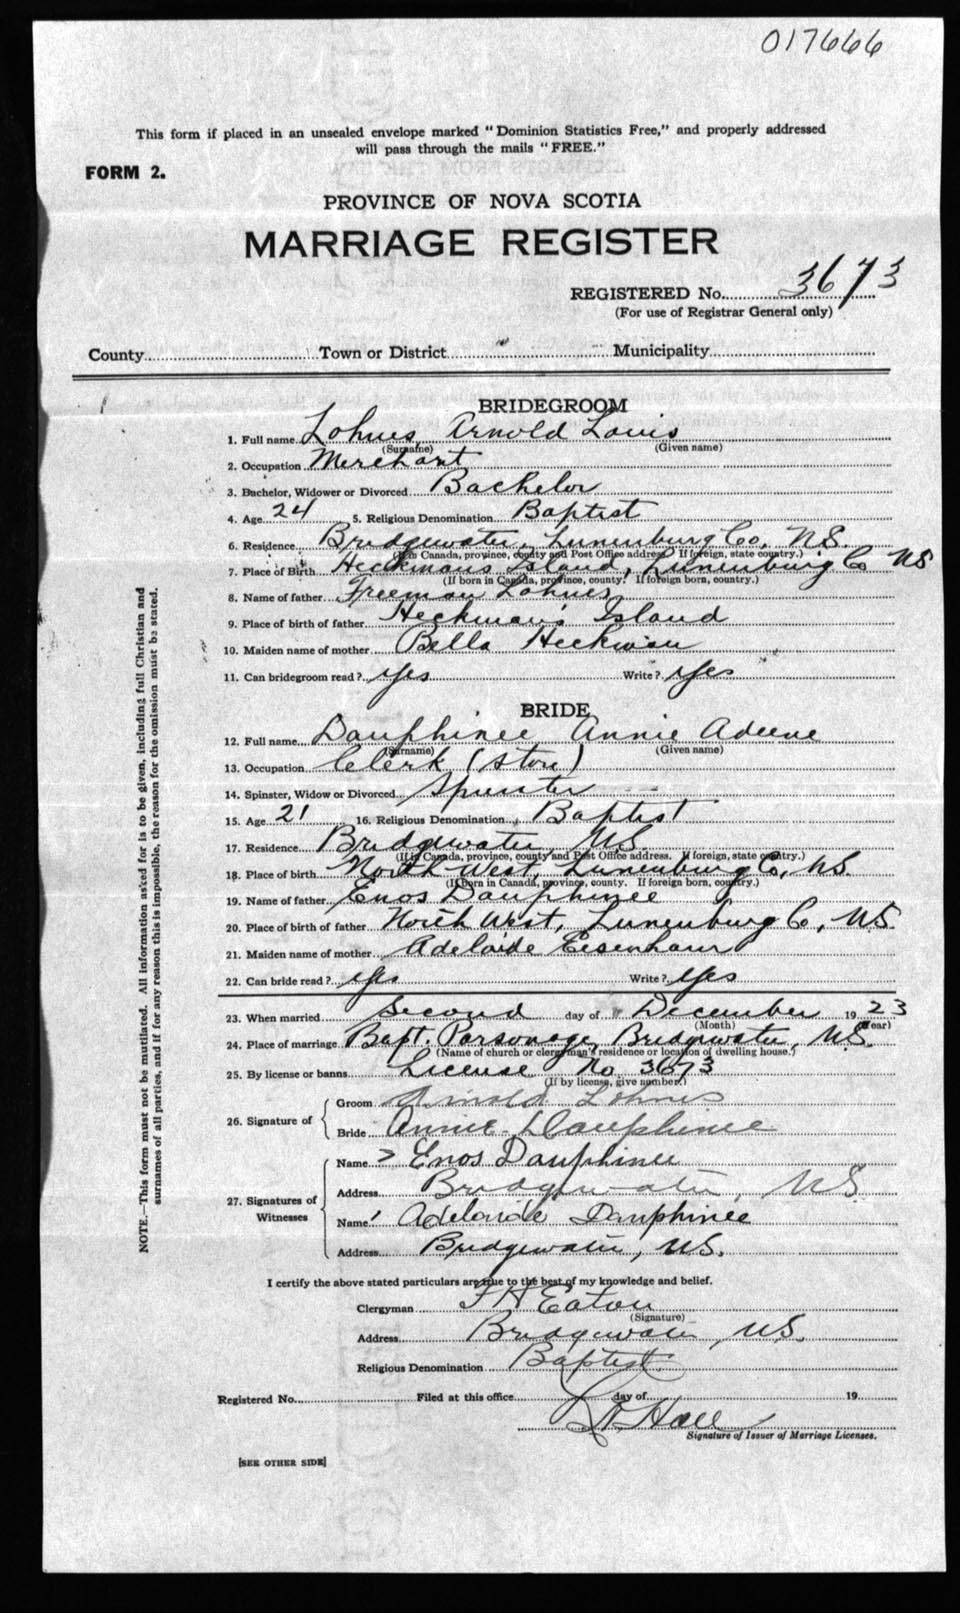 017666
This form if placed in an unsealed envelope marked "Dominion Statistics Free," and properly addressed
will pass through the mails "FREE."
FORM 2.
PROVINCE OF NOVA SCOTIA
MARRIAGE REGISTER
REGISTERED No. 3673
(For use of Registrar General only)
County Town or District Municipality
BRIDEGROOM
1. Full name Lohnes, Arnold Louis
(Surname) (Given name)
2. Occupation Merchant
3. Bachelor, Widower or Divorced Bachelor
4. Age 24 5. Religious Denomination Baptist
6. Residence Bridgewater, Lunenburg Co, N.S.
(If in Canada, province, county and Post Office address. If foreign, state country.)
7. Place of Birth Heckmans Island, Lunenburg Co NS
(If born in Canada, province, county. If foreign born, country.)
8. Name of father Freeman Lohnes
9. Place of birth of father Heckman's Island
10. Maiden name of mother Bella Heckman
11. Can bridegroom read? yes Write? yes
BRIDE
12. Full name Dauphinee Annie Adeene
(Surname) (Given name)
13. Occupation Clerk (store)
14. Spinster, Widow or Divorced Spinster
15. Age 21 16. Religious Denomination Baptist
17. Residence Bridgewater N.S.
(If in Canada, province, county and Post Office address. If foreign, state country.)
18. Place of birth North West, Lunenburg Co, N.S.
(If born in Canada, province, county. If foreign born, country.)
19. Name of father Enos Dauphinee
20. Place of birth of father North West, Lunenburg Co, N.S.
21. Maiden name of mother Adelaide Eisenhaur
22. Can bride read? yes Write? yes
23. When married Second day of December 1923
(Month) (Year)
24. Place of marriage Bapt. Parsonage, Bridgewater, N.S.
(Name of church or clergyman's residence or location of dwelling house.)
25. By license or banns License No 3673
(If by license, give number.)
26. Signature of
Groom Arnold Lohnes
Bride Annie Dauphinee
27. Signatures of Witnesses
Name Enos Dauphinee
Address Bridgewater, N.S.
Name Adelaide Dauphinee
Address Bridgewater, N.S.
I certify the above stated particulars are true to the best of my knowledge and belief.
Clergyman F H Eaton
(Signature)
Address Bridgewater, N.S.
Religious Denomination Baptist
Registered No. Filed at this office day of 19
Hall
Signature of Issuer of Marriage Licenses.
[SEE OTHER SIDE]
NOTE.—This form must not be mutilated. All information asked for is to be given, including full Christian and
surnames of all parties, and if for any reason this is impossible, the reason for the omission must be stated.